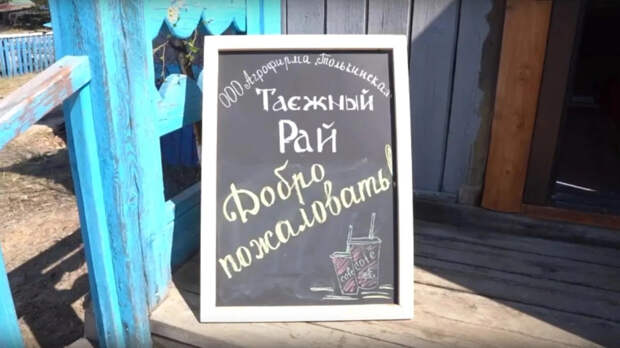 ООО Агрофирма „Толькинская"
Таежный
Рай
Добро
пожаловать!